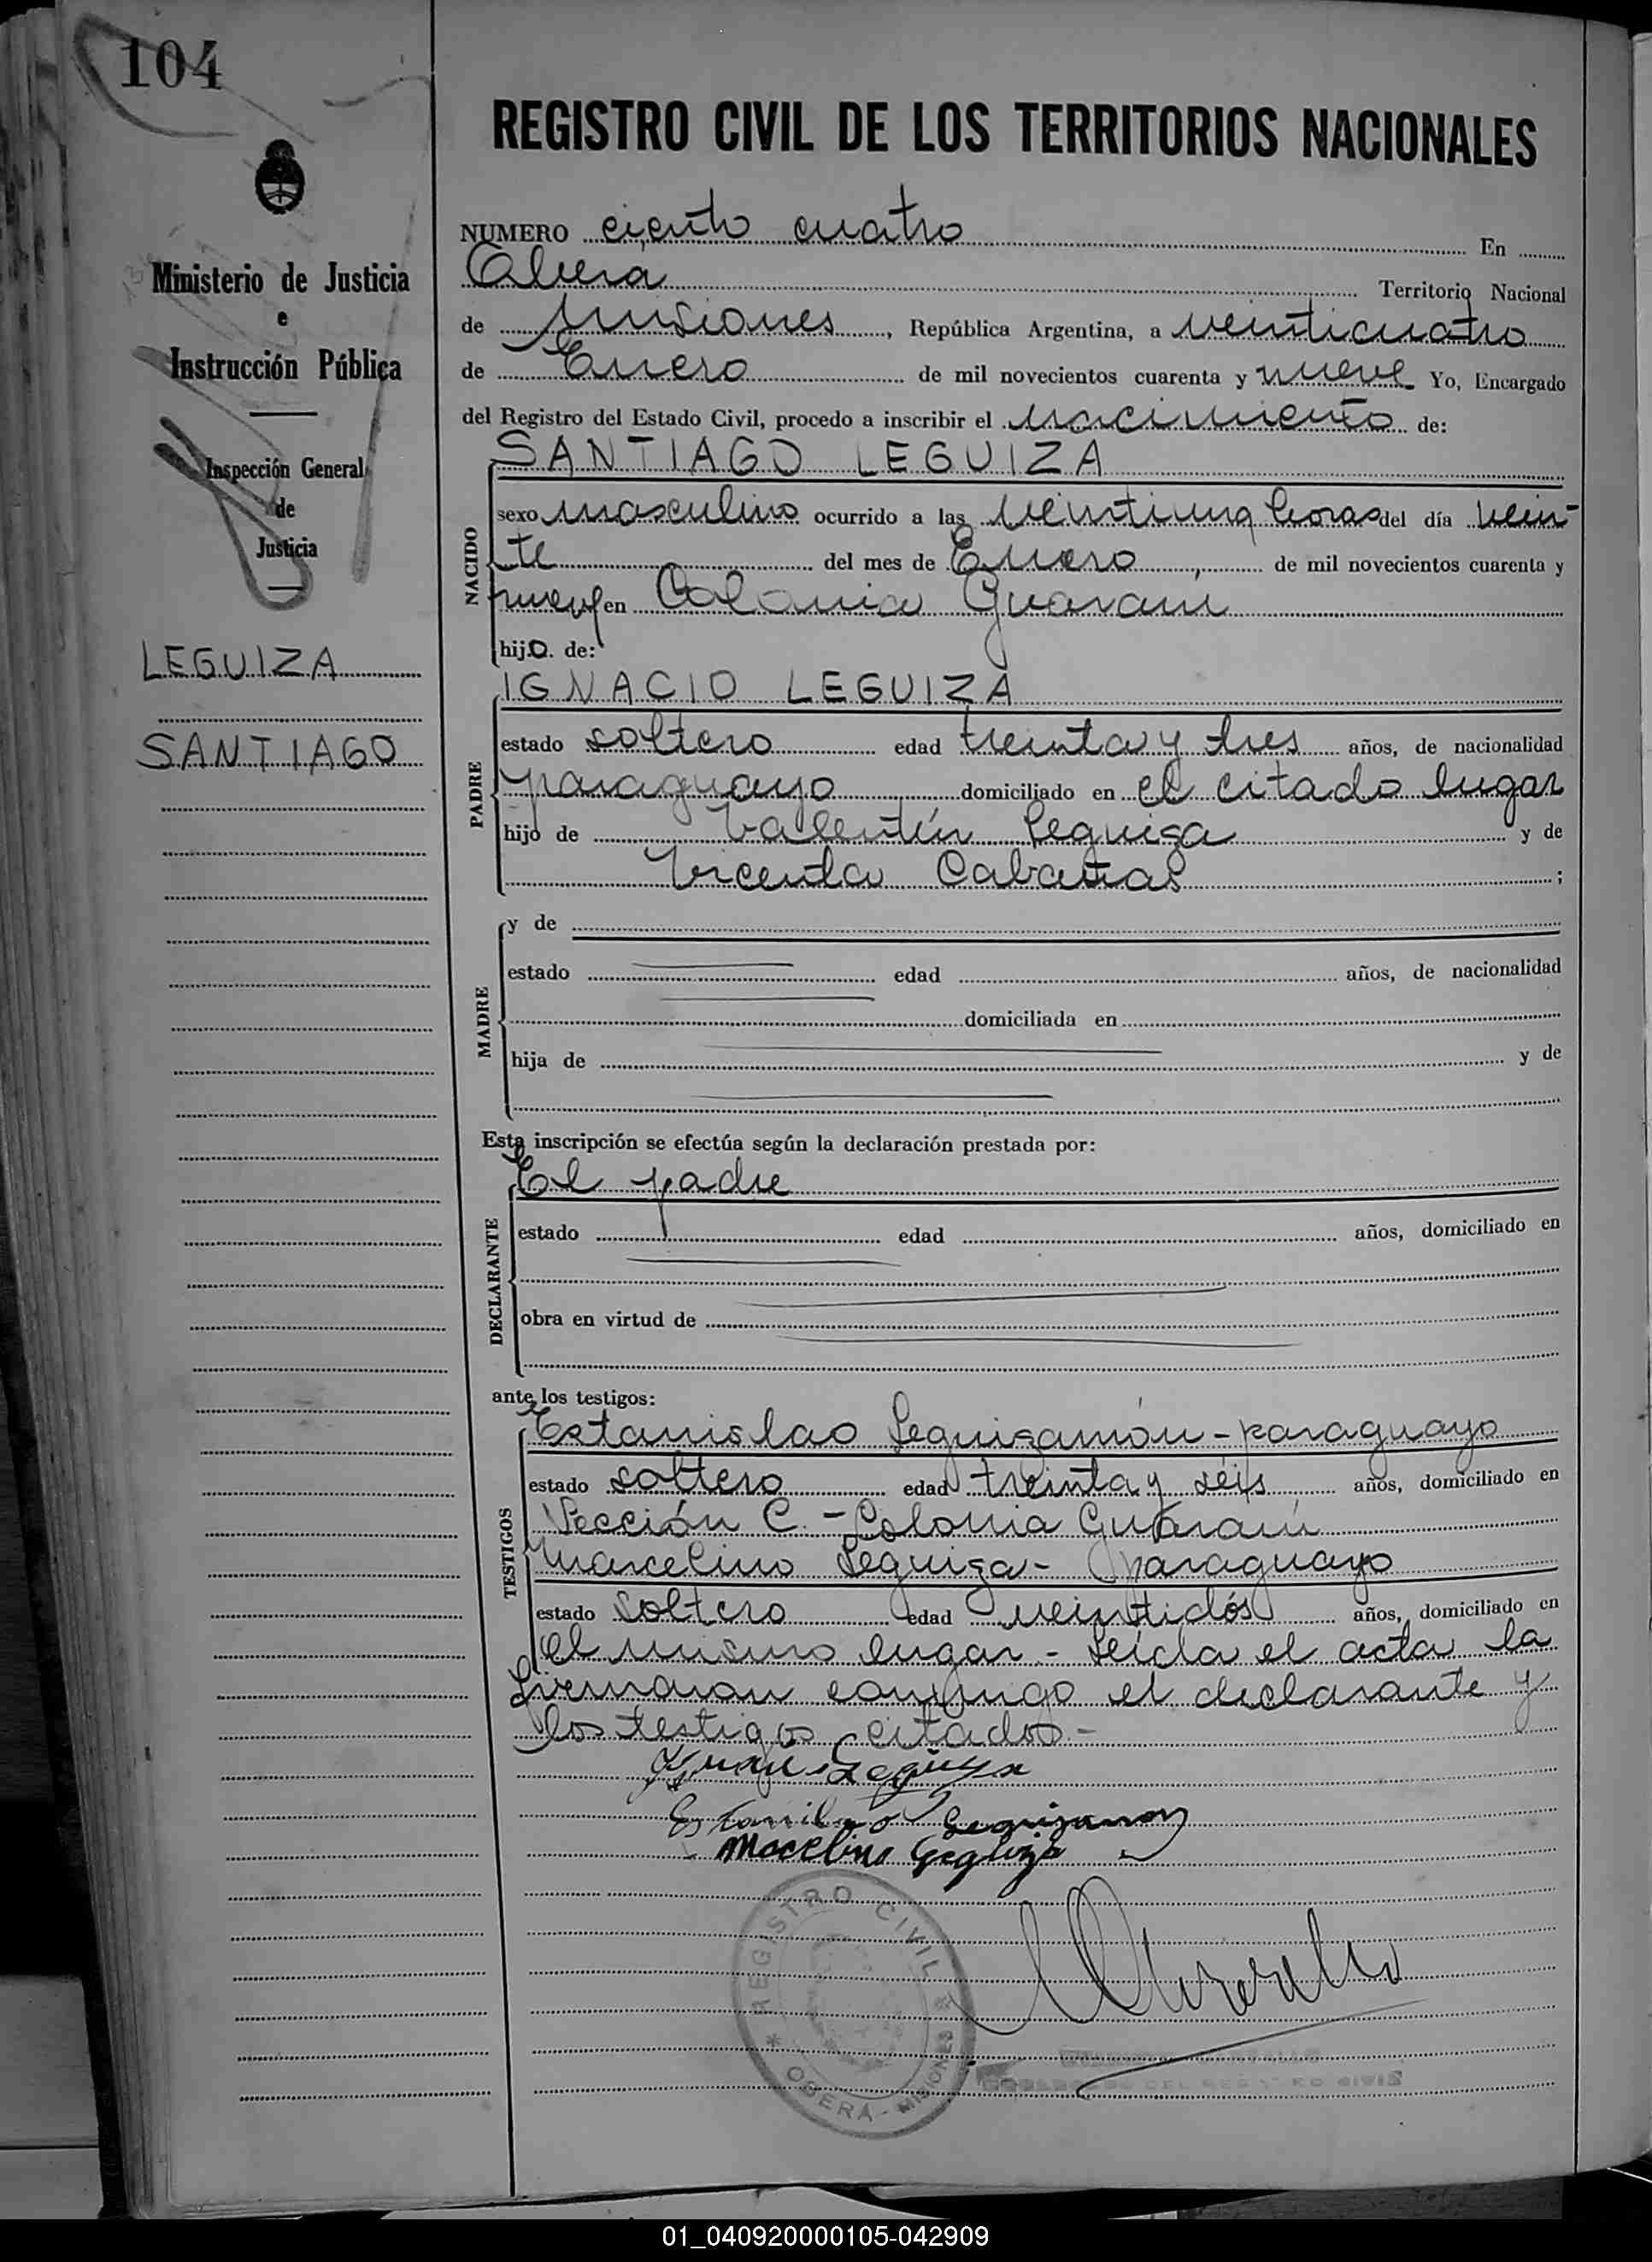 104
REGISTRO CIVIL DE LOS TERRITORIOS NACIONALES
Ministerio de Justicia
e
Instrucción Pública
Inspección General
de
Justicia
LEGUIZA
SANTIAGO
NUMERO ciento cuatro En
Obera Territorio Nacional
de Misiones, República Argentina, a veinticuatro
de Enero de mil novecientos cuarenta y nueve Yo, Encargado
del Registro del Estado Civil, procedo a inscribir el nacimiento de:
SANTIAGO LEGUIZA
NACIDO
sexo masculino ocurrido a las veintiuna horas del día vein-
te del mes de Enero, de mil novecientos cuarenta y
nueve en Colonia Guarani
hijo. de:
IGNACIO LEGUIZA
PADRE
estado soltero edad treinta y tres años, de nacionalidad
paraguayo domiciliado en el citado lugar
hijo de Valentín Leguiza y de
Vicenta Cabañas ;
MADRE
y de
estado edad años, de nacionalidad
domiciliada en
hija de y de
Esta inscripción se efectúa según la declaración prestada por:
El padre
DECLARANTE
estado edad años, domiciliado en
obra en virtud de
ante los testigos:
Estanislao Leguizamón - paraguayo
TESTIGOS
estado soltero edad treinta y séis años, domiciliado en
Sección C. - Colonia Guaraní
Marcelino Leguiza - paraguayo
estado soltero edad veintidós años, domiciliado en
el mismo lugar - Leída el acta la
firmaron conmigo el declarante y
los testigos citados -
Leguiza
Estanilao Leguizamon
Macelino Legiza
REGISTRO CIVIL
* OBERA - MISIONES *
DEL REGISTRO CIVIL
01_040920000105-042909